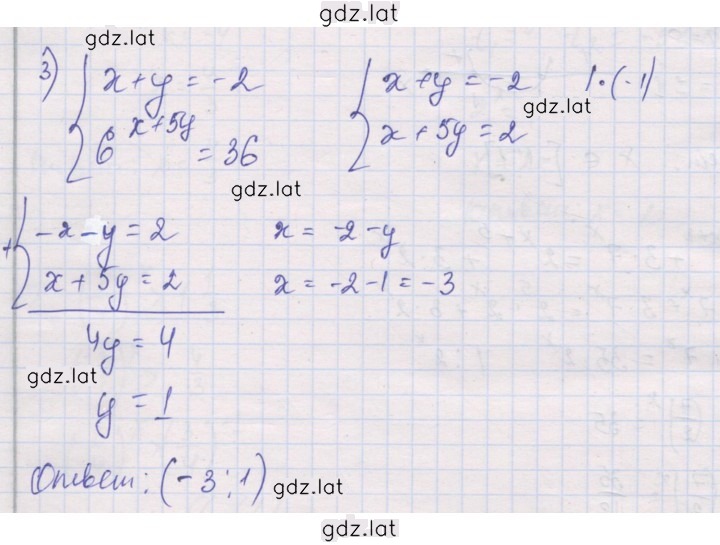 gdz.lat
gdz.lat
3) { x + y = -2
6^{x+5y} = 36
{ x + y = -2 | · (-1)
x + 5y = 2
gdz.lat
gdz.lat
+ { -x - y = 2
x + 5y = 2
4y = 4
y = 1
x = -2 - y
x = -2 - 1 = -3
gdz.lat
Ответ: (-3; 1)
gdz.lat
gdz.lat